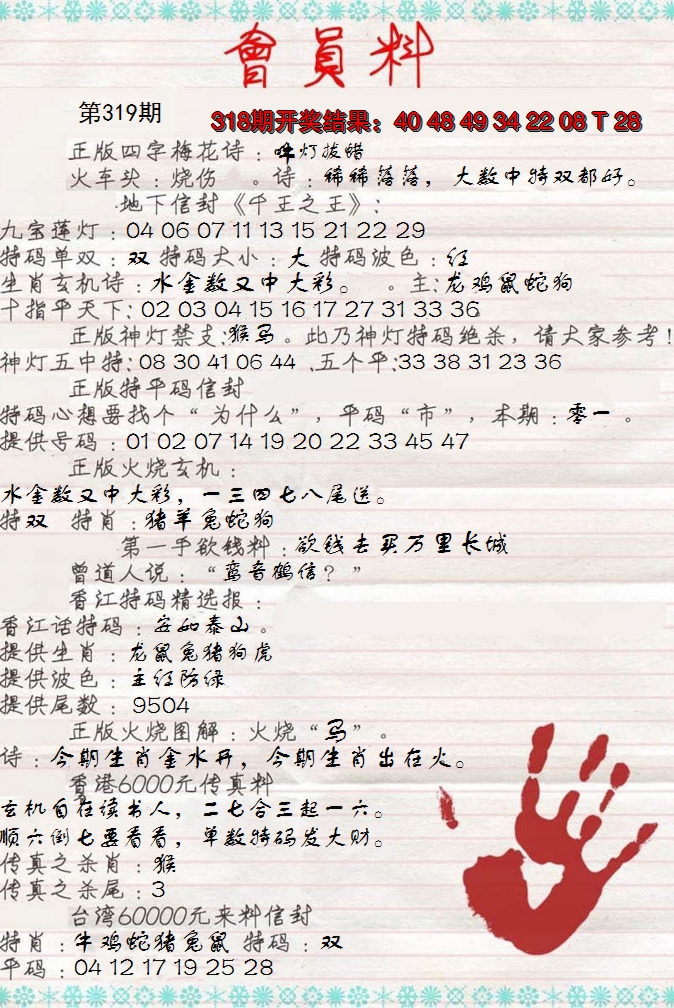 會員料
第319期
318期开奖结果：40 48 49 34 22 08 T 28
正版四字梅花诗：吹灯拔蜡
火车头：烧伤 。诗：稀稀落落，大数中特双都好。
地下信封《千王之王》：
九宝莲灯：04 06 07 11 13 15 21 22 29
特码单双：双 特码大小：大 特码波色：红
生肖玄机诗：水金数又中大彩。 。主：龙鸡鼠蛇狗
十指平天下：02 03 04 15 16 17 27 31 33 36
正版神灯禁支：猴马。此乃神灯特码绝杀，请大家参考！
神灯五中特：08 30 41 06 44 .五个平：33 38 31 23 36
正版特平码信封
特码心想要找个“为什么”，平码“市”，本期：零一。
提供号码：01 02 07 14 19 20 22 33 45 47
正版火烧玄机：
水金数又中大彩，一三四七八尾送。
特双 特肖：猪羊兔蛇狗
第一手欲钱料：欲钱去买万里长城
曾道人说：“鸾音鹤信？”
香江特码精选报：
香江话特码：安如泰山。
提供生肖：龙鼠兔猪狗虎
提供波色：主红防绿
提供尾数：9504
正版火烧图解：火烧“马”。
诗：今期生肖金水开，今期生肖出在火。
香港6000元传真料
玄机自在读书人，二七合三起一六。
顺六倒七要看看，单数特码发大财。
传真之杀肖：猴
传真之杀尾：3
台湾60000元来料信封
特肖：牛鸡蛇猪兔鼠 特码：双
平码：04 12 17 19 25 28